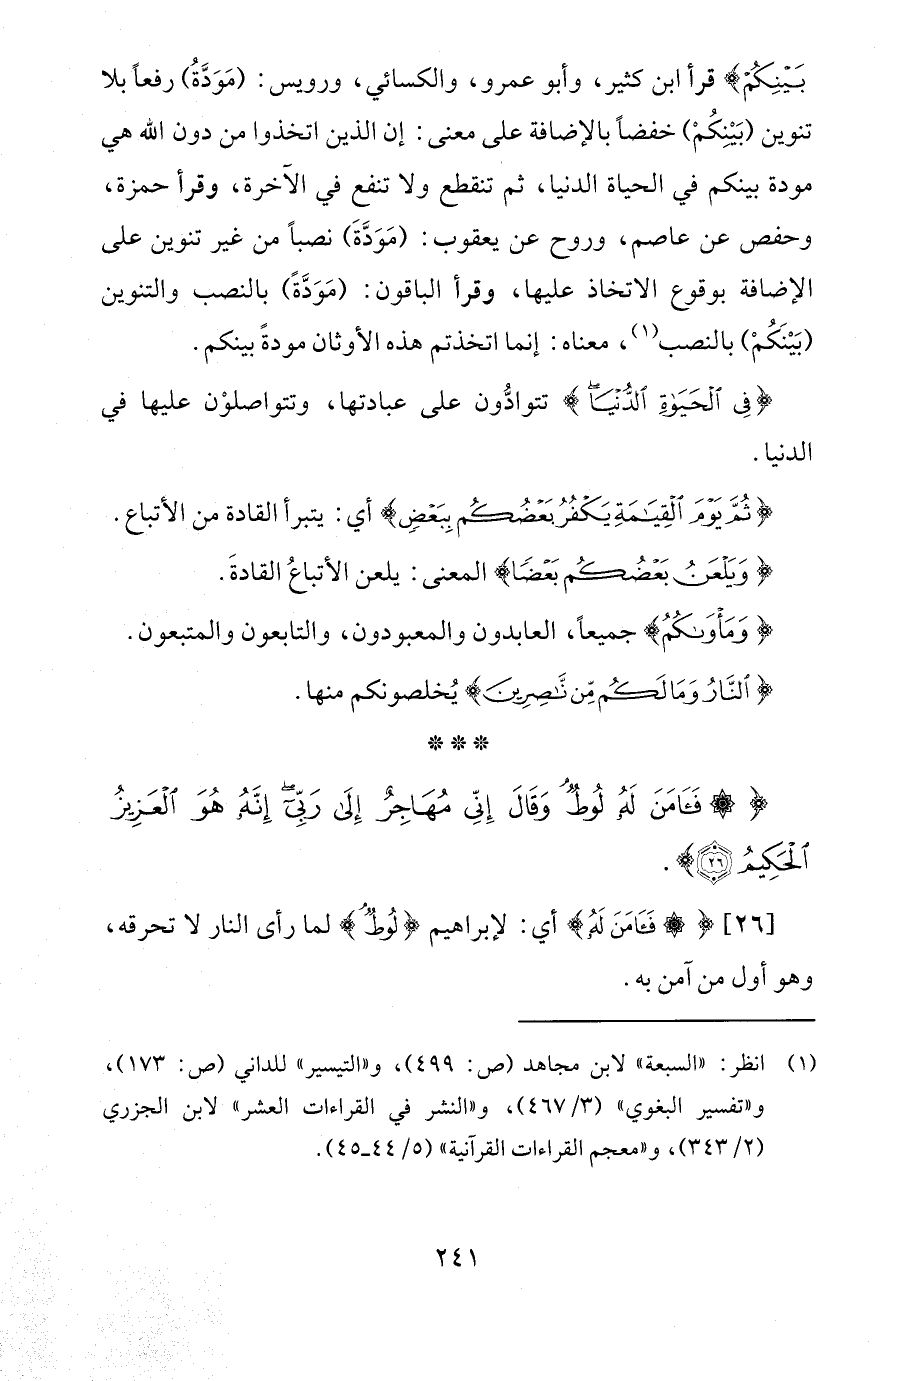 بَيْنِكُمْ﴾ قرأ ابن كثير، وأبو عمرو، والكسائي، ورويس: (مَوَدَّةُ) رفعاً بلا
تنوين (بَيْنِكُمْ) خفضاً بالإضافة على معنى: إن الذين اتخذوا من دون الله هي
مودة بينكم في الحياة الدنيا، ثم تنقطع ولا تنفع في الآخرة، وقرأ حمزة،
وحفص عن عاصم، وروح عن يعقوب: (مَوَدَّةَ) نصباً من غير تنوين على
الإضافة بوقوع الاتخاذ عليها، وقرأ الباقون: (مَوَدَّةً) بالنصب والتنوين
(بَيْنَكُمْ) بالنصب(١)، معناه: إنما اتخذتم هذه الأوثان مودةً بينكم.
﴿فِي ٱلْحَيَوٰةِ ٱلدُّنْيَاۖ﴾ تتوادُّون على عبادتها، وتتواصلوْن عليها في
الدنيا.
﴿ثُمَّ يَوْمَ ٱلْقِيَٰمَةِ يَكْفُرُ بَعْضُكُم بِبَعْضٍ﴾ أي: يتبرأ القادة من الأتباع.
﴿وَيَلْعَنُ بَعْضُكُم بَعْضًا﴾ المعنى: يلعن الأتباعُ القادةَ.
﴿وَمَأْوَىٰكُمُ﴾ جميعاً، العابدون والمعبودون، والتابعون والمتبعون.
﴿ٱلنَّارُ وَمَا لَكُم مِّن نَّٰصِرِينَ﴾ يُخلصونكم منها.
***
﴿۞ فَـَٔامَنَ لَهُۥ لُوطٌۘ وَقَالَ إِنِّي مُهَاجِرٌ إِلَىٰ رَبِّيٓۖ إِنَّهُۥ هُوَ ٱلْعَزِيزُ
ٱلْحَكِيمُ ٢٦﴾.
[٢٦] ﴿۞ فَـَٔامَنَ لَهُۥ﴾ أي: لإبراهيم ﴿لُوطٌۘ﴾ لما رأى النار لا تحرقه،
وهو أول من آمن به.
(١) انظر: «السبعة» لابن مجاهد (ص: ٤٩٩)، و«التيسير» للداني (ص: ١٧٣)،
و«تفسير البغوي» (٣/ ٤٦٧)، و«النشر في القراءات العشر» لابن الجزري
(٢/ ٣٤٣)، و«معجم القراءات القرآنية» (٥/ ٤٤ـ٤٥).
٢٤١